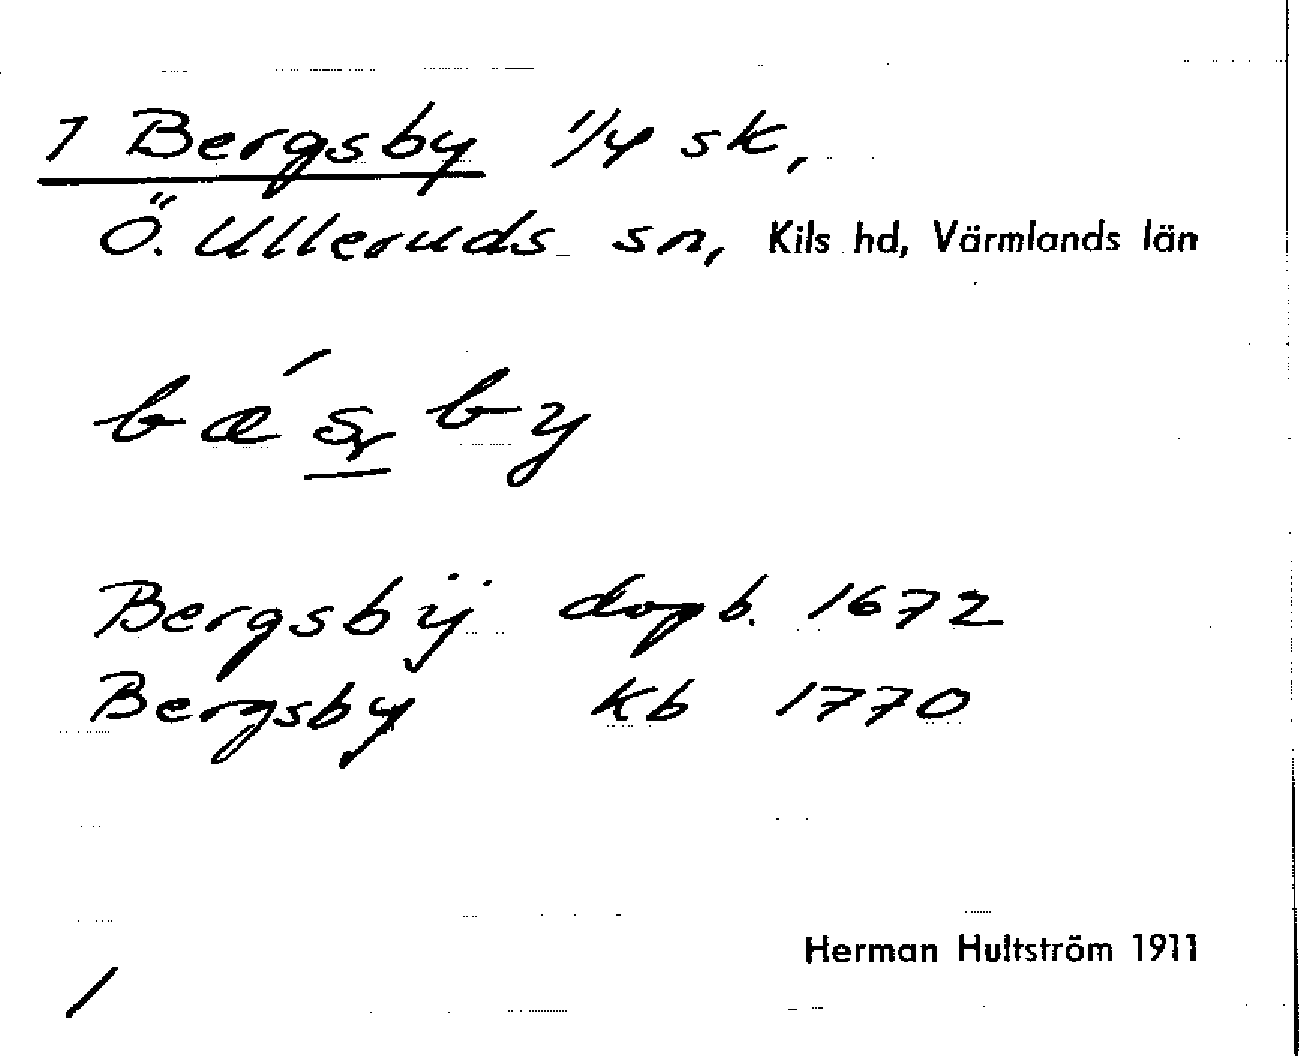 1 Bergsby 1/4 sk,
Ö. Ulleruds sn, Kils hd, Värmlands län
bǽsby
Bergsbÿ dopb. 1672
Bergsby kb 1770
Herman Hultström 1911
/